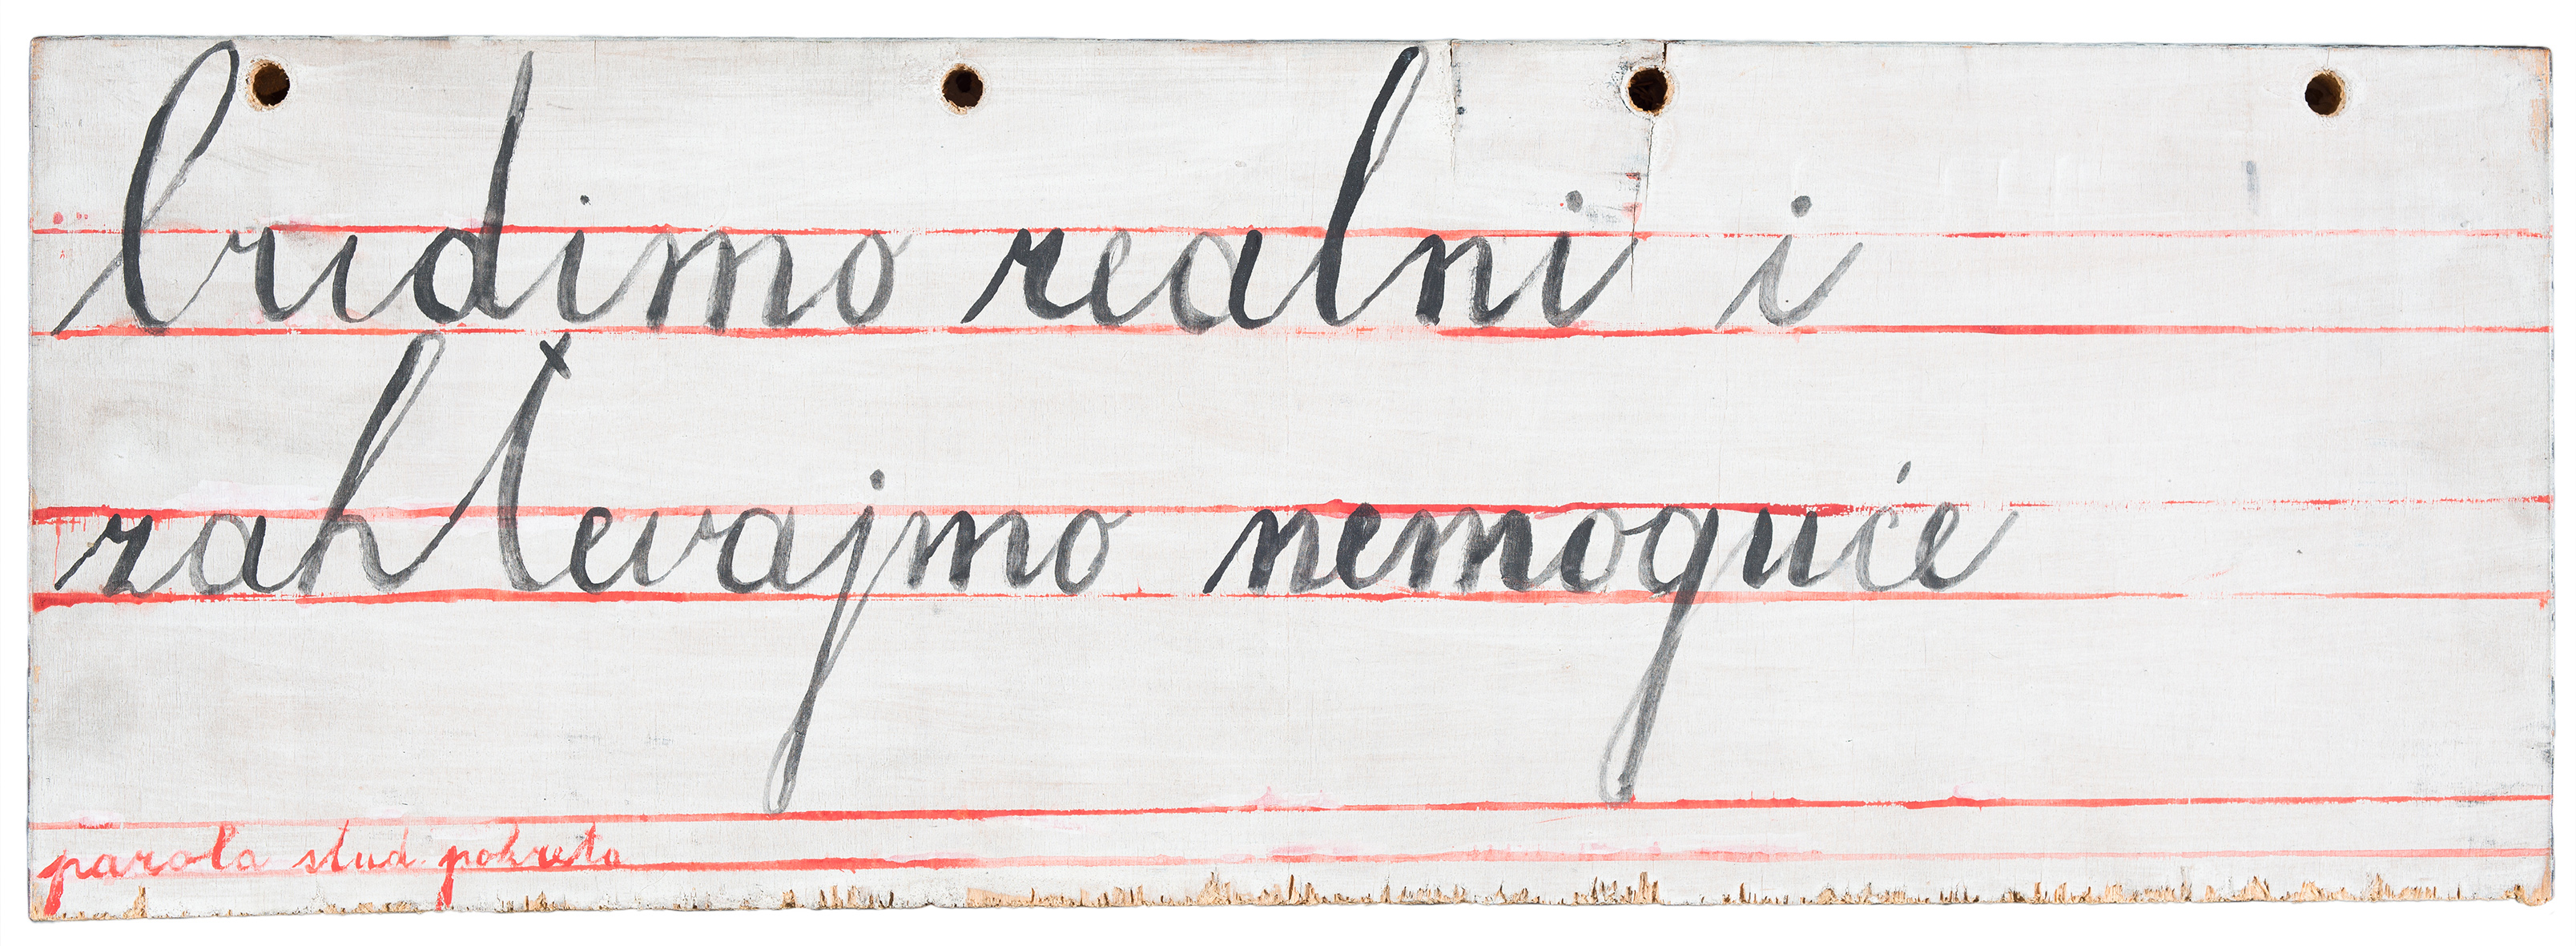 budimo realni i
zahtevajmo nemoguće
parola stud. pokreta